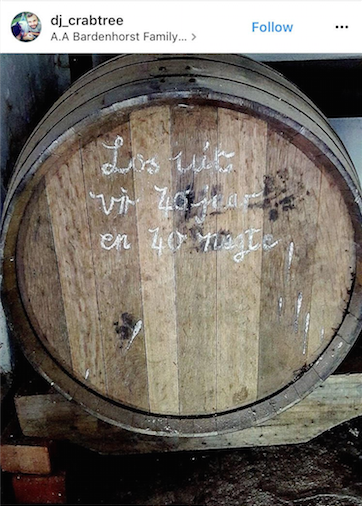 dj_crabtree
Follow
A.A Bardenhorst Family...
Los uit
vir 40 jaar
en 40 nagte